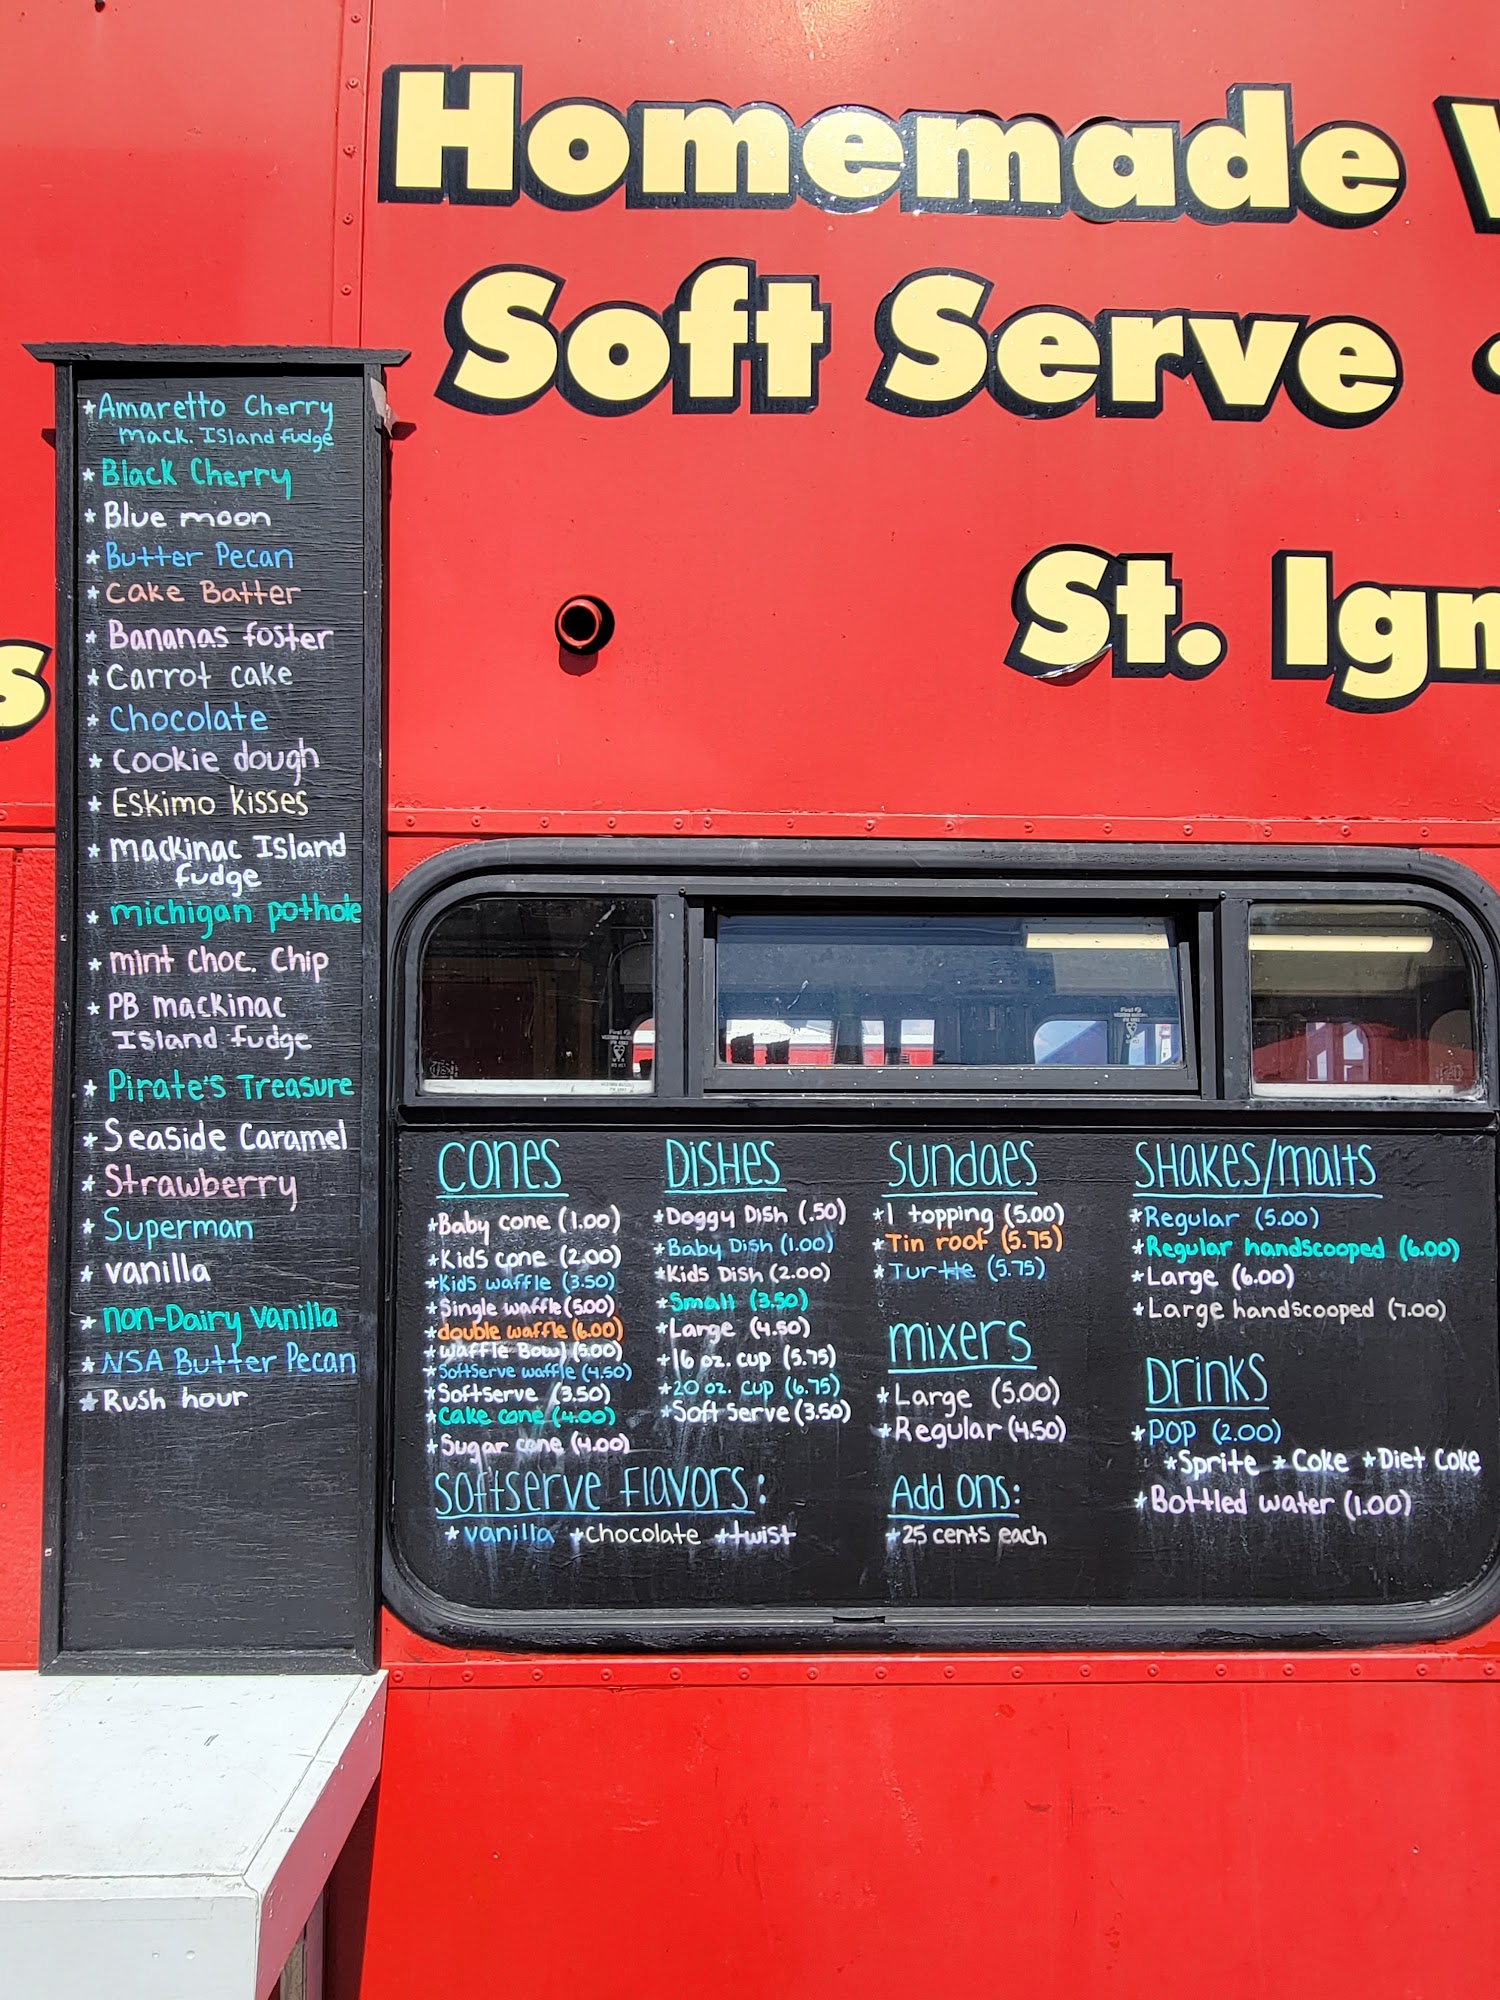 Homemade
Soft Serve
St. Ign
s
*Amaretto Cherry
Mack. Island fudge
*Black Cherry
*Blue moon
*Butter Pecan
*Cake Batter
*Bananas foster
*Carrot cake
*Chocolate
*Cookie dough
*Eskimo Kisses
*mackinac Island
fudge
*michigan pothole
*mint choc. Chip
*PB mackinac
Island fudge
*Pirate's Treasure
*Seaside Caramel
*Strawberry
*Superman
*vanilla
*non-Dairy vanilla
*NSA Butter Pecan
*Rush hour
CONES
*Baby cone (1.00)
*Kids cone (2.00)
*Kids waffle (3.50)
*Single waffle (5.00)
*double waffle (6.00)
*waffle Bowl (5.00)
*SoftServe waffle (4.50)
*Softserve (3.50)
*Cake cone (4.00)
*Sugar cone (4.00)
DISHES
*Doggy Dish (.50)
*Baby Dish (1.00)
*Kids Dish (2.00)
*Small (3.50)
*Large (4.50)
*16 oz. cup (5.75)
*20 oz. cup (6.75)
*Soft Serve (3.50)
Softserve Flavors:
*vanilla *Chocolate *twist
Sundaes
*1 topping (5.00)
*Tin roof (5.75)
*Turtle (5.75)
mixers
*Large (5.00)
*Regular (4.50)
Add ons:
*25 cents each
SHAKES/malts
*Regular (5.00)
*Regular handscooped (6.00)
*Large (6.00)
*Large handscooped (7.00)
Drinks
*POP (2.00)
*Sprite *Coke *Diet Coke
*Bottled water (1.00)